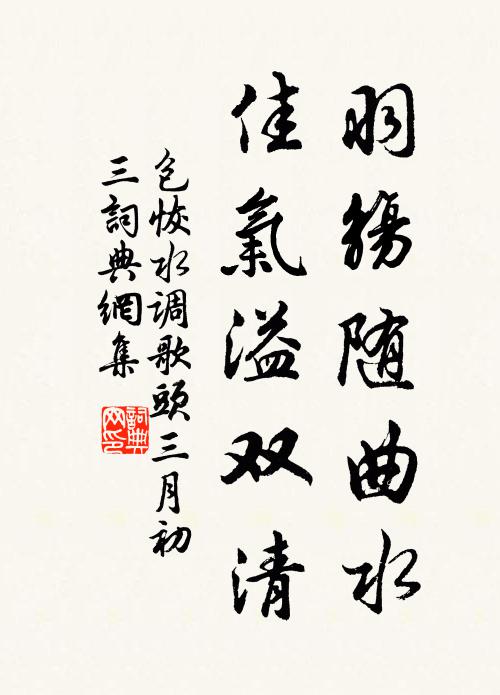 羽觴随曲水
佳氣溢双清
包恢水调歌頭三月初
三詞典網集
詞典网印